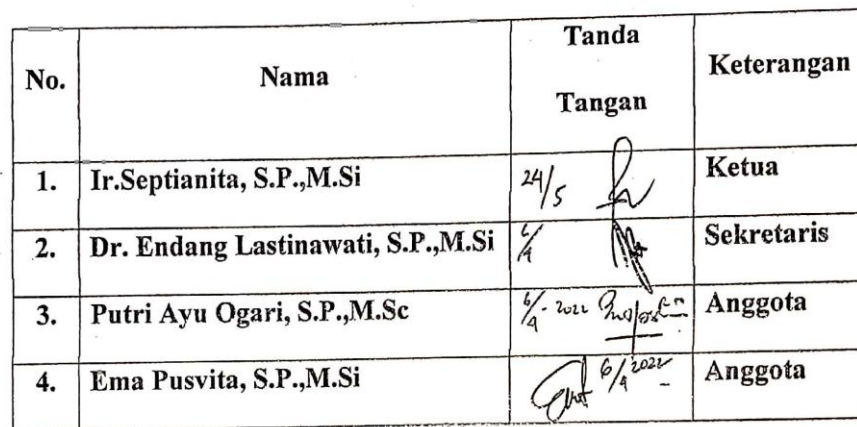 No. Nama Tanda Tangan Keterangan
1. Ir.Septianita, S.P.,M.Si 24/5 Ketua
2. Dr. Endang Lastinawati, S.P.,M.Si 6/4 Sekretaris
3. Putri Ayu Ogari, S.P.,M.Sc 6/4 - 2022 Anggota
4. Ema Pusvita, S.P.,M.Si 6/4 2022 Anggota